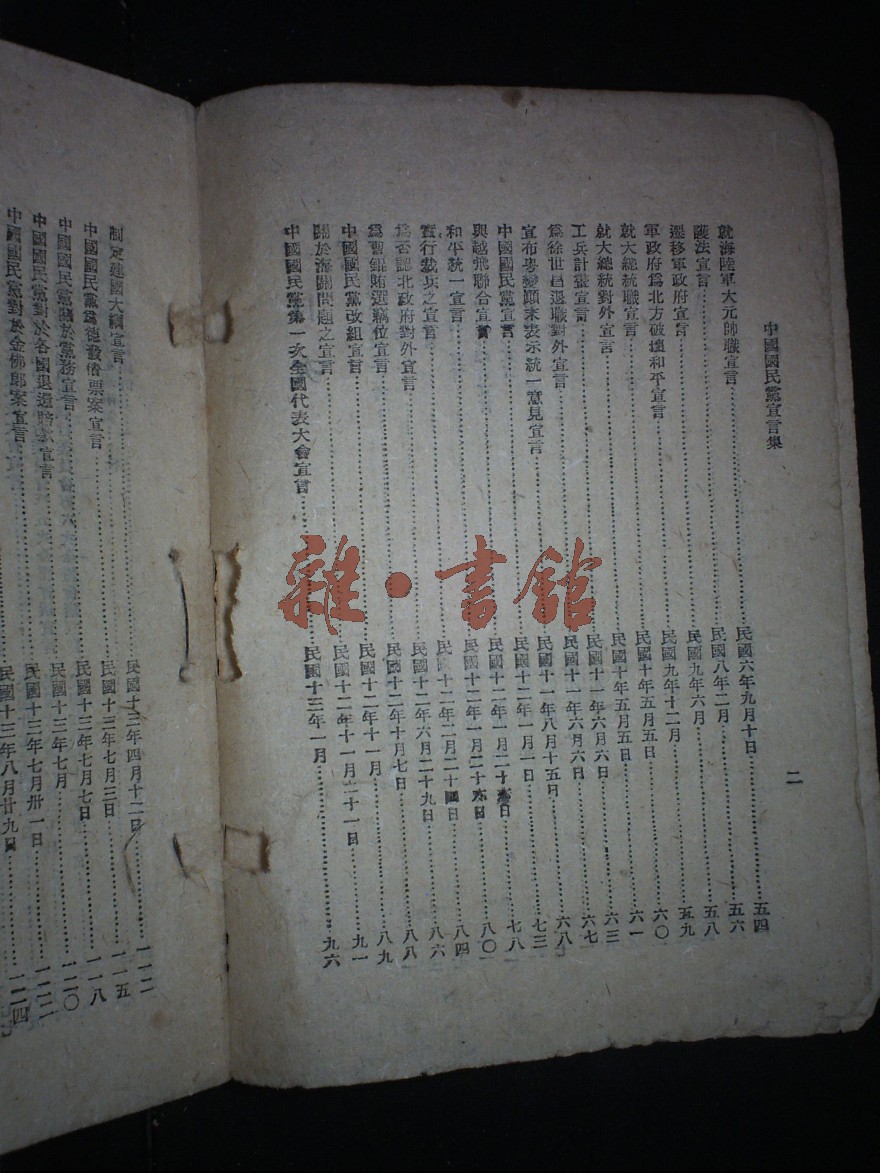 中國國民黨宣言集
二
就海陸軍大元帥職宣言……民國六年九月十日……五四
護法宣言……民國八年二月……五六
遷移軍政府宣言……民國九年六月……五八
軍政府爲北方破壞和平宣言……民國九年十二月……五九
就大總統職宣言……民國十年五月五日……六〇
就大總統對外宣言……民國十年五月五日……六一
工兵計畫宣言……民國十一年六月六日……六三
爲徐世昌退職對外宣言……民國十一年六月六日……六七
宣布粵變顚末表示統一意見宣言……民國十一年八月十五日……六八
中國國民黨宣言……民國十二年一月一日……七三
與越飛聯合宣言……民國十二年一月二十六日……七八
和平統一宣言……民國十二年一月二十六日……八〇
實行裁兵之宣言……民國十二年二月二十四日……八四
爲否認北政府對外宣言……民國十二年六月二十九日……八六
爲曹錕賄選竊位宣言……民國十二年十月七日……八八
中國國民黨改組宣言……民國十二年十一月……八九
關於海關問題之宣言……民國十二年十一月二十一日……九一
中國國民黨第一次全國代表大會宣言……民國十三年一月……九六
制定建國大綱宣言……民國十三年四月十二日……一一二
中國國民黨爲德發債票案宣言……民國十三年七月三日……一一五
中國國民黨關於黨務宣言……民國十三年七月七日……一一八
中國國民黨對於各國退還賠款宣言……民國十三年七月……一二〇
中國國民黨對於金佛郎案宣言……民國十三年七月卅一日……一二二
民國十三年八月廿九日……一二四
雜·書館